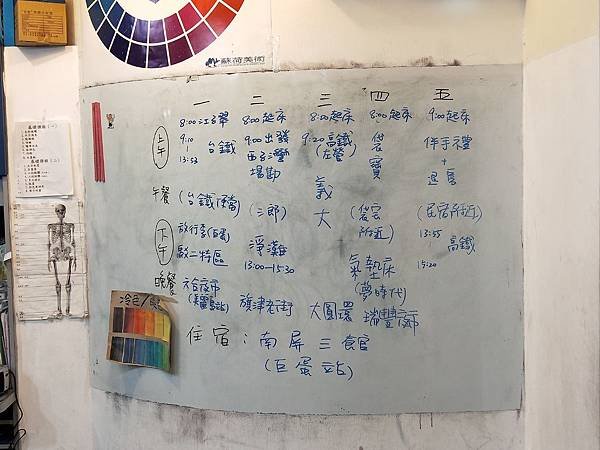 蘇荷美術
一 二 三 四 五
8:00 江子翠 8:00 起床 8:00 起床 8:00 起床 9:00 起床
上午 9:10 | 13:53 台鐵 9:00 出發 西子灣 場勘 9:20 高鐵 (左營) 袋寶 伴手禮 + 退房
午餐 (台鐵便當) (三郎) 義大 (袋寶附近) (民宿附近)
下午 放行李 駁二特區 淨灘 13:00-15:30 氣墊床 (夢時代) 13:55 | 高鐵 15:20
晚餐 六合夜市 旗津老街 大圓環 瑞豐夜市
冷色
住宿: 南屏三館
(巨蛋站)